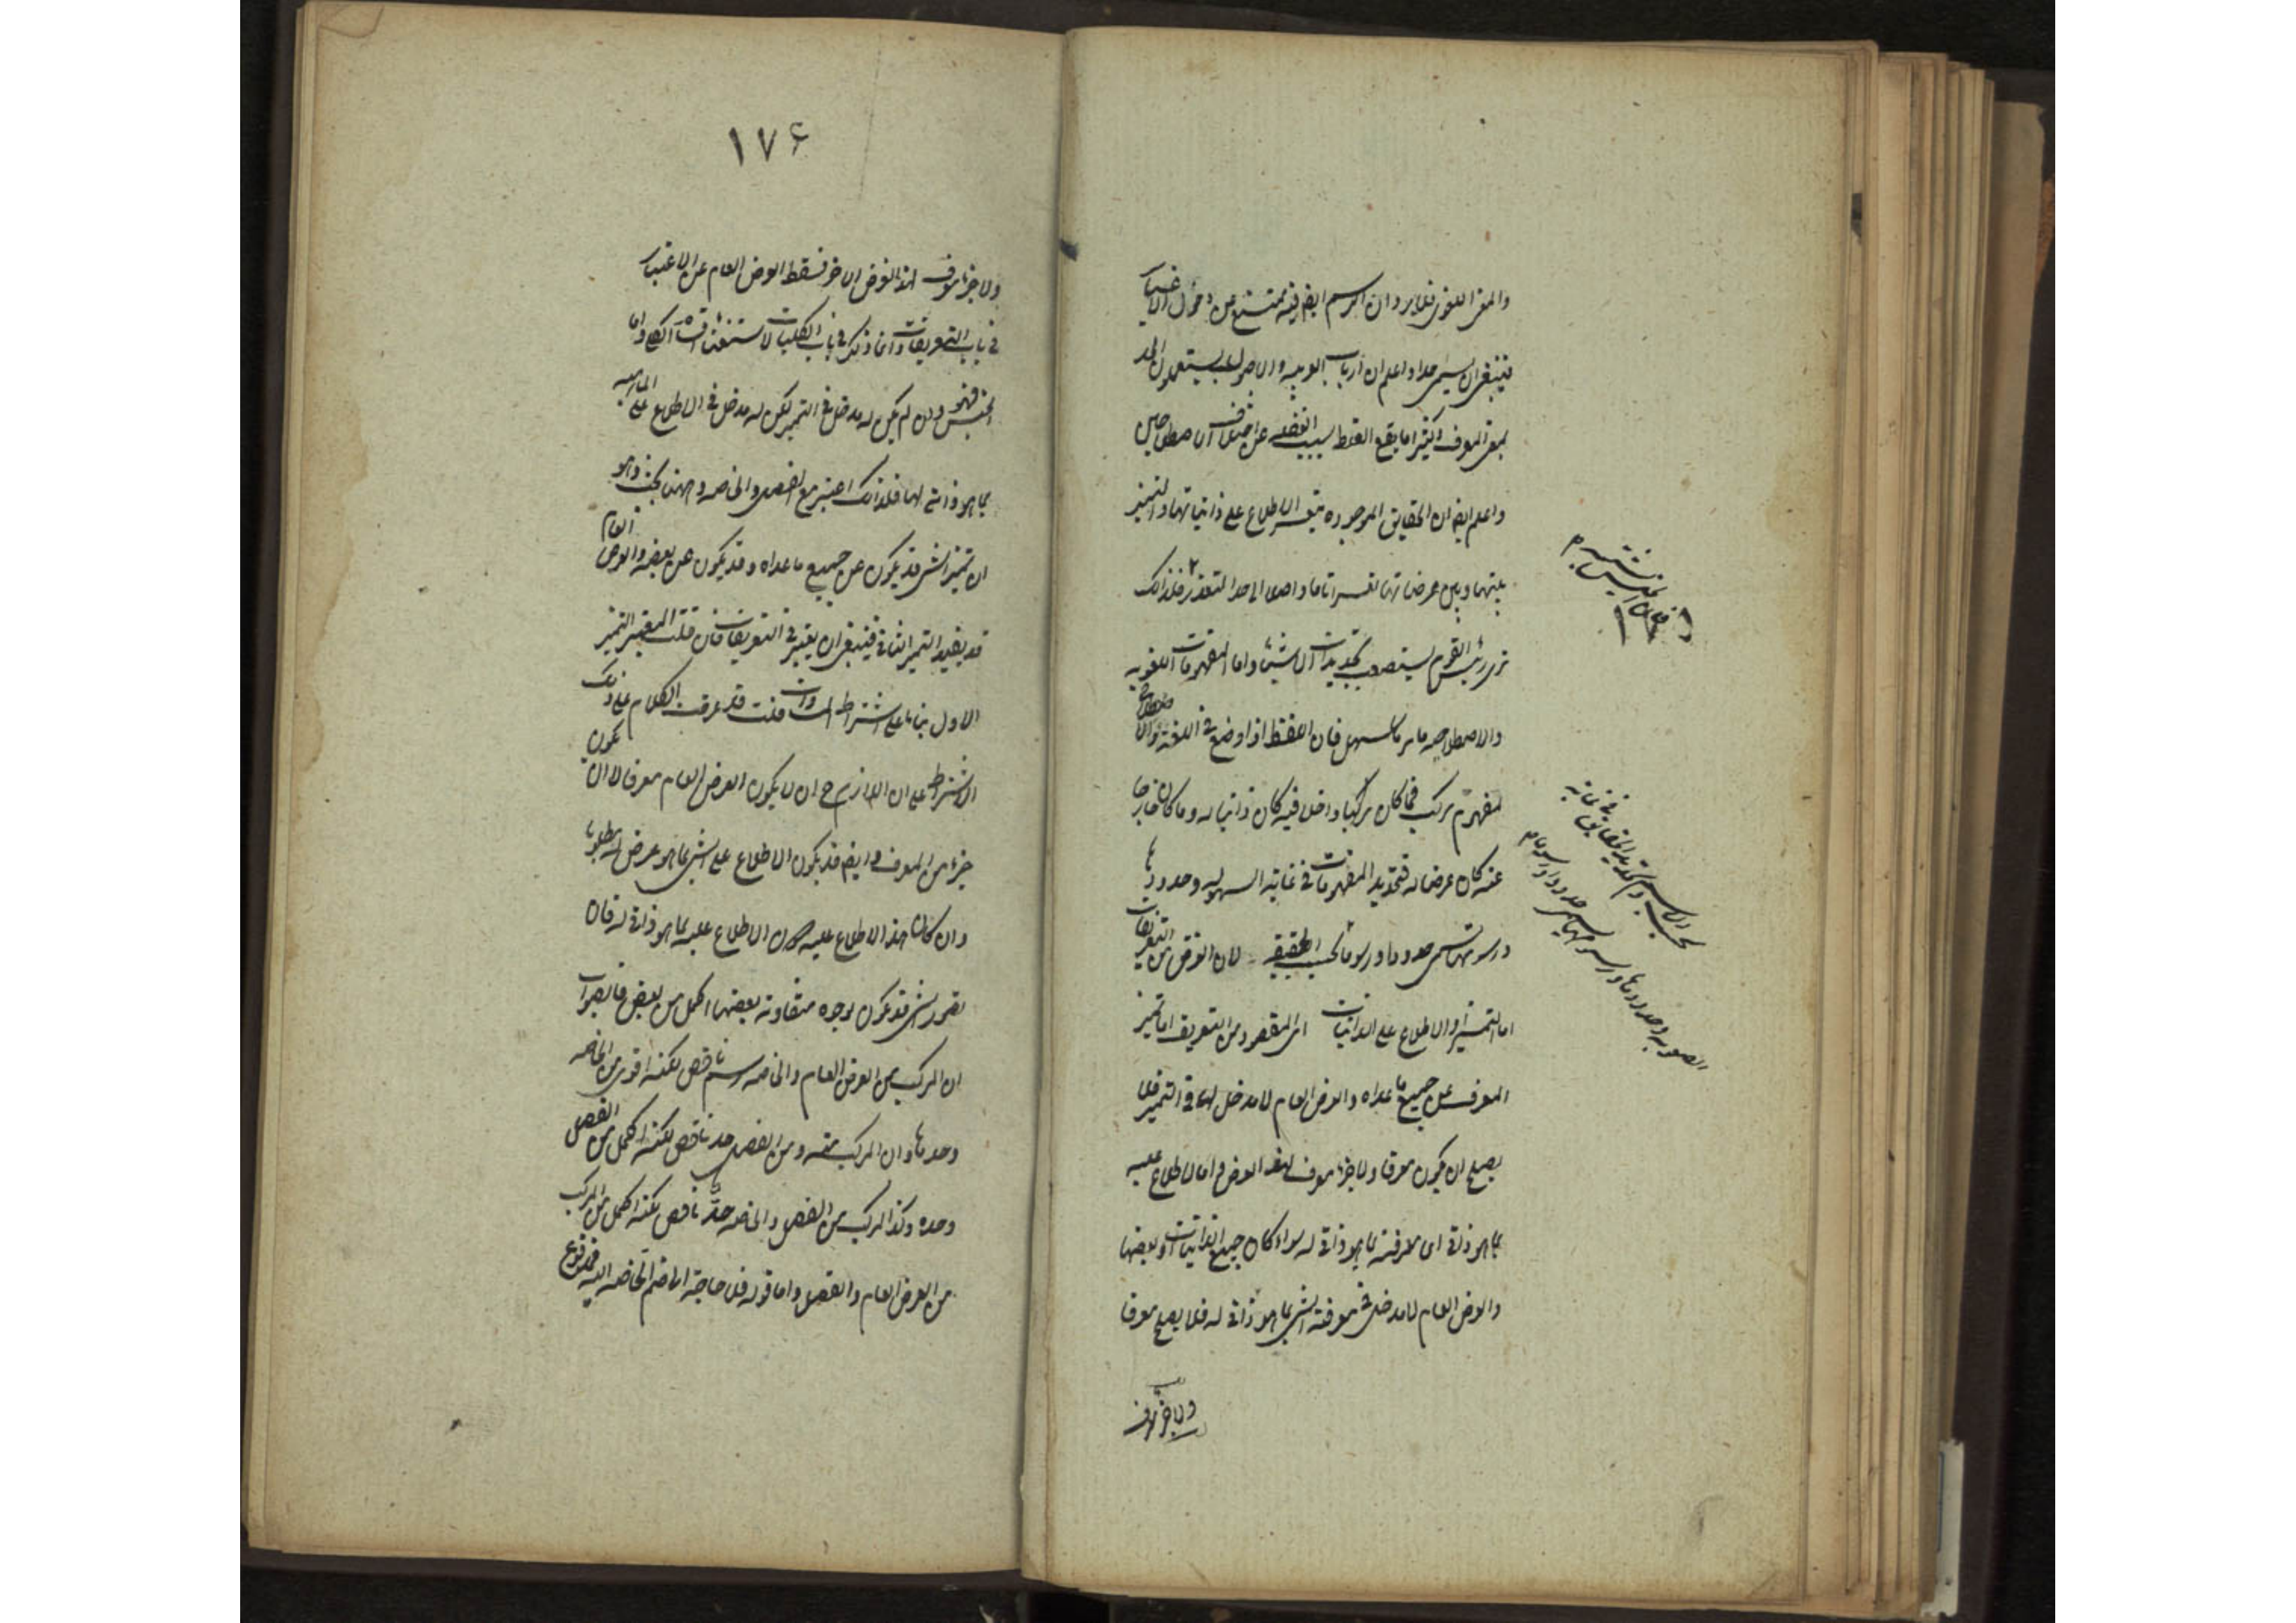 والمعنى اللغوى فظاهر وان الرسم ايضا فيه يمتنع عن دخول الاغيار
فينبغى ان يسمى حدا واعلم ان ارباب العربية والاصول يستعملون الحد
بمعنى المعرف وكثيرا ما يقع الغلط بسبب الغفلة عن اختلاف الاصطلاحين
واعلم ايضا ان الحقايق الموجودة يتعسر الاطلاع على ذاتياتها والتمييز
بينها وبين عرضياتها تعسرا تاما واصلا الى حد التعذر فلذلك
ترى رئيس القوم يستصعب تحديدات الاشياء واما المفهومات اللغوية
والاصطلاحية فامرها سهل فان اللفظ اذا وضع فى اللغة والاصطلاح
لمفهوم مركب فما كان داخلا فيه كان ذاتيا له وما كان خارجا
عنه كان عرضيا له فتحديد المفهومات فى غاية السهولة وحدودها
ورسومها تسمى حدودا ورسوما بحسب الحقيقة لان الغرض من التعريفات
اما التمييز او الاطلاع على الذاتيات اى المقصود من التعريف اما تمييز
المعرف عن جميع ما عداه والعرض العام لا مدخل لها فى التمييز فلا
يصلح ان يكون معرفا ولا جزء معرف لهذا الغرض واما الاطلاع عليه
بما هو ذاتى اى معرفته بما هو ذاتى له سواء كان جميع الذاتيات او بعضها
والعرض العام لا مدخل فى معرفة الشئ بما هو ذاتى له فلا يصلح معرفا
ولا جزء معرف
بحسب الاسم وتحديد الحقايق فى غاية
الصعوبة وحدودها ورسومها تسمى حدودا ورسوما
١٧۶
ولا جزء معرف لهذا الغرض الاخر فسقط العرض العام عن الاعتبار
فى باب التعريفات وانما ذكر فى باب الكليات لاستيفاء اقسام الكلى واما
الجنس فهو وان لم يكن له مدخل فى التمييز لكن له مدخل فى الاطلاع على الماهية
بما هو ذاتى لها فلذلك اعتبر مع الفصل والخاصة وههنا بحث وهو
ان تميز الشئ قد يكون عن جميع ما عداه وقد يكون عن بعضه والعرض العام
قد يفيد التميز الثانى فينبغى ان يعتبر فى التعريفات فان قلت المعتبر التميز
الاول بناء على اشتراط المساواة قلت قد عرفت الكلام على ذلك
الاشتراط على ان اللازم ح ان لا يكون العرض العام معرفا لا ان لا يكون
جزء من المعرف وايضا قد يكون الاطلاع على الشئ بما هو عرضى له مطلوبا
وان كان هذا الاطلاع عليه دون الاطلاع عليه بما هو ذاتى له فان
تصور الشئ قد يكون بوجوه متفاوتة بعضها اكمل من بعض فالصواب
ان المركب من العرض العام والخاصة رسم ناقص لكنه اقوى من الخاصة
وحدها وان المركب منه ومن الفصل حد ناقص لكنه اكمل من الفصل
وحده وكذا المركب من الفصل والخاصة حد ناقص لكنه اكمل من المركب
من العرض العام والفصل واما قوله فلا حاجة الى ضم الخاصة اليه فمدفوع